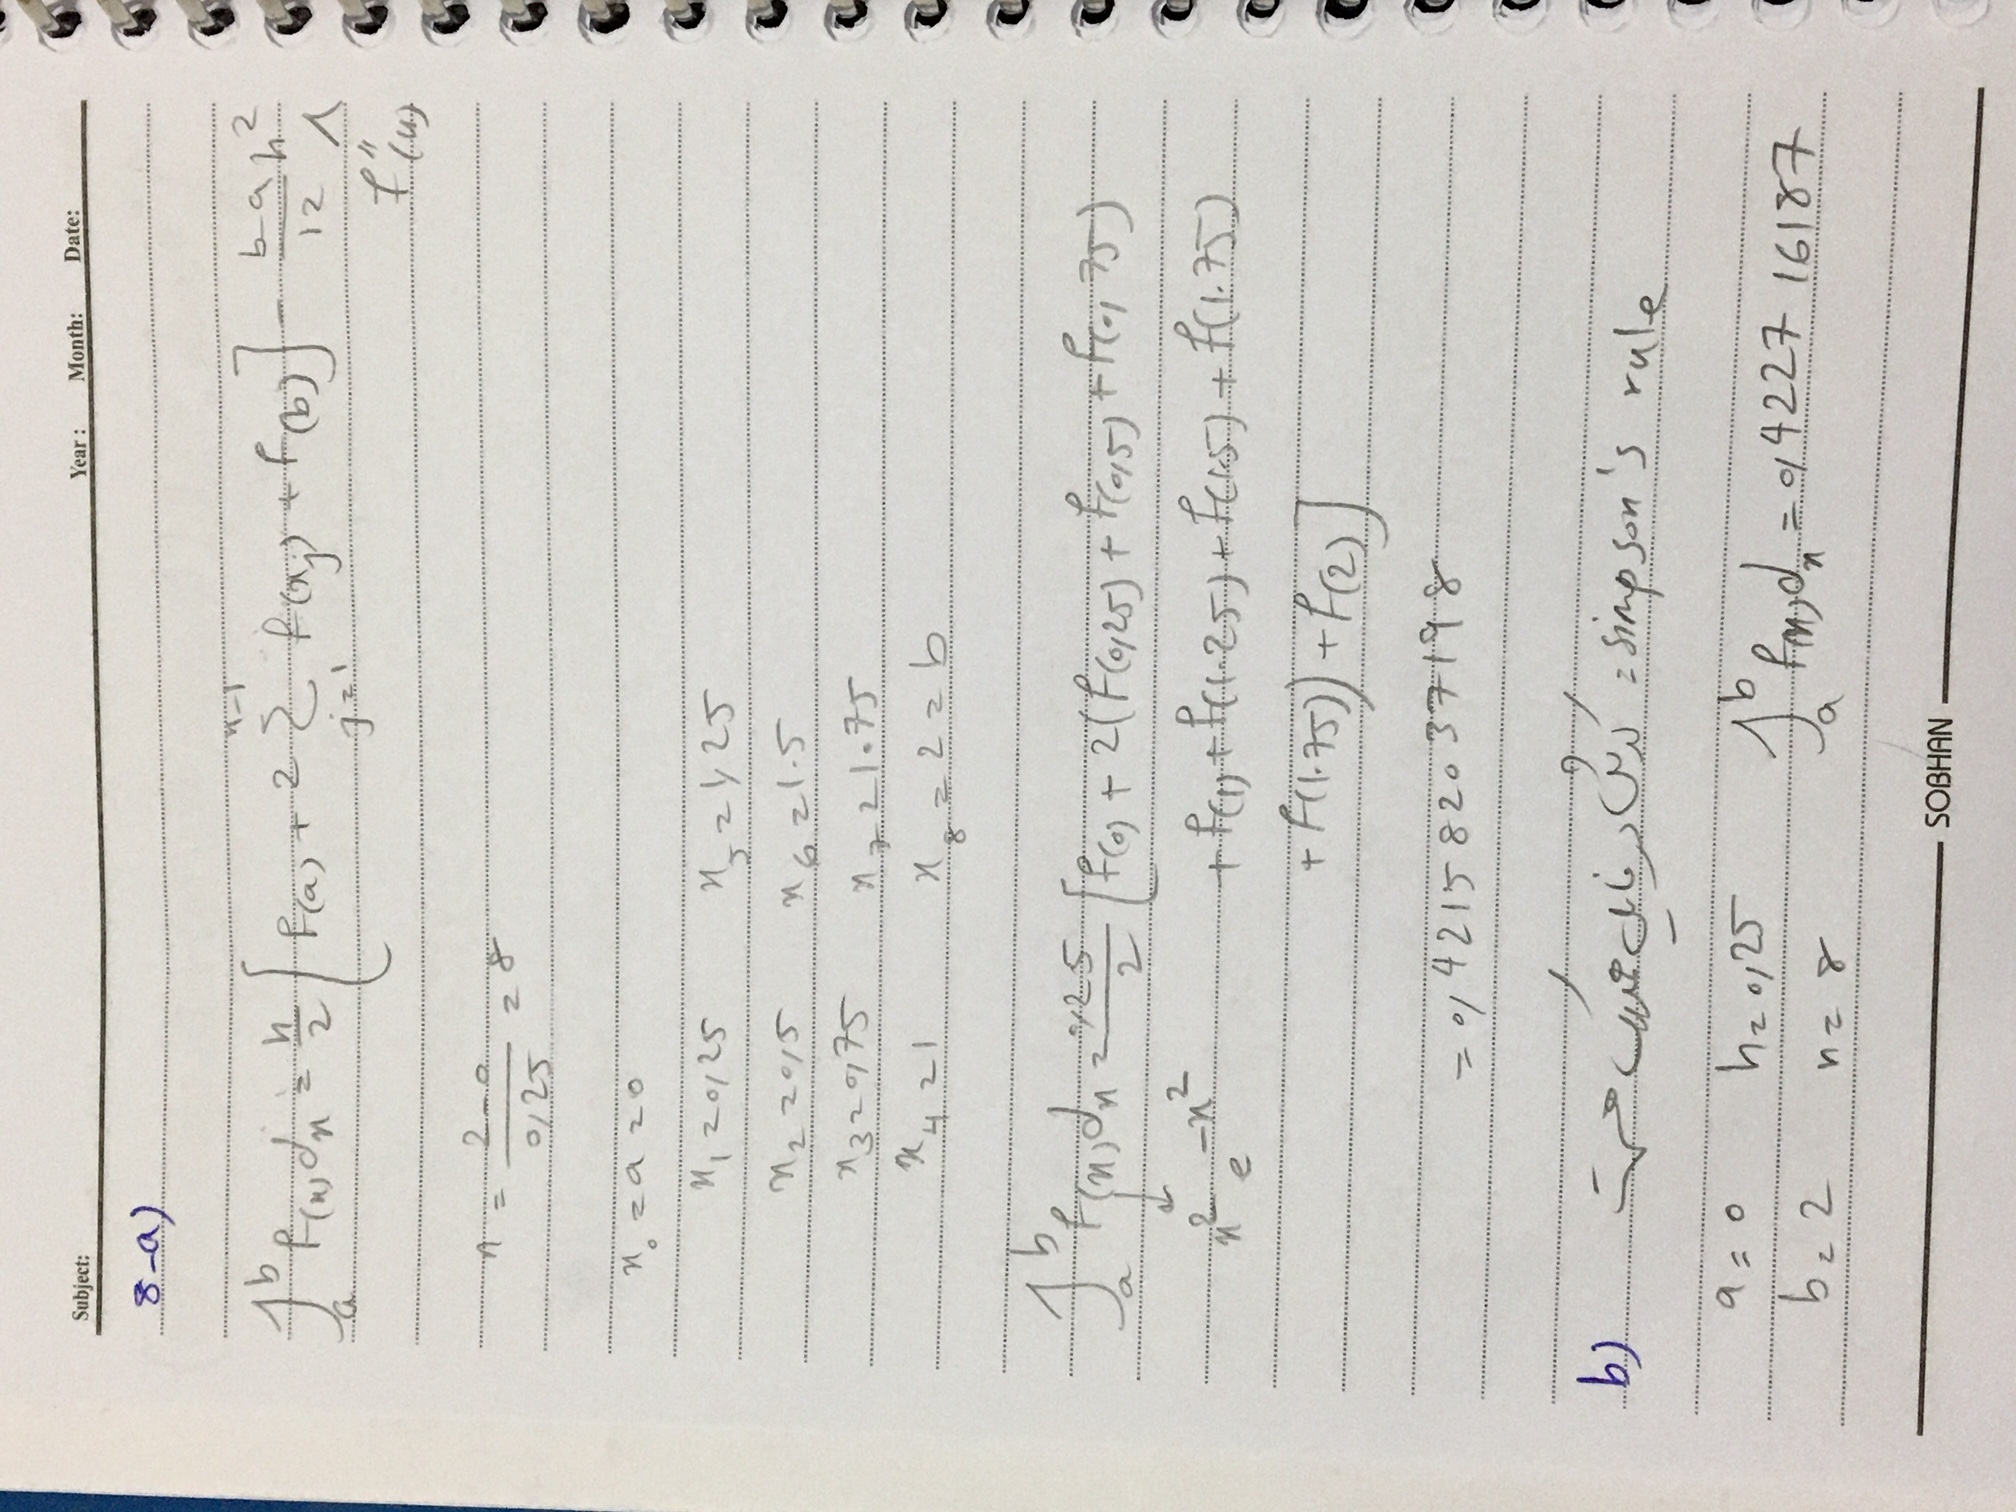 Subject: Year : Month: Date:
8-a)
∫_a^b f(x)dx = h/2 [ f(a) + 2 Σ_{j=1}^{n-1} f(x_j) + f(b) ] - (b-a)/12 h^2
f''(μ)
n = (2-0)/0,25 = 8
x_0 = a = 0
x_1 = 0,25 x_5 = 1,25
x_2 = 0,5 x_6 = 1.5
x_3 = 0,75 x_7 = 1.75
x_4 = 1 x_8 = 2 = b
∫_a^b f(x)dx = 0,25/2 [ f(0) + 2(f(0,25) + f(0,5) + f(0,75)
x^2 e^{-x^2} + f(1) + f(1.25) + f(1.5) + f(1.75)
+ f(1.75)) + f(2) ]
= 0,421582037198
b) کدش در فایل هست = simpson's rule
a = 0 h = 0,25 ∫_a^b f(x)dx = 0,4227 16187
b = 2 n = 8
SOBHAN